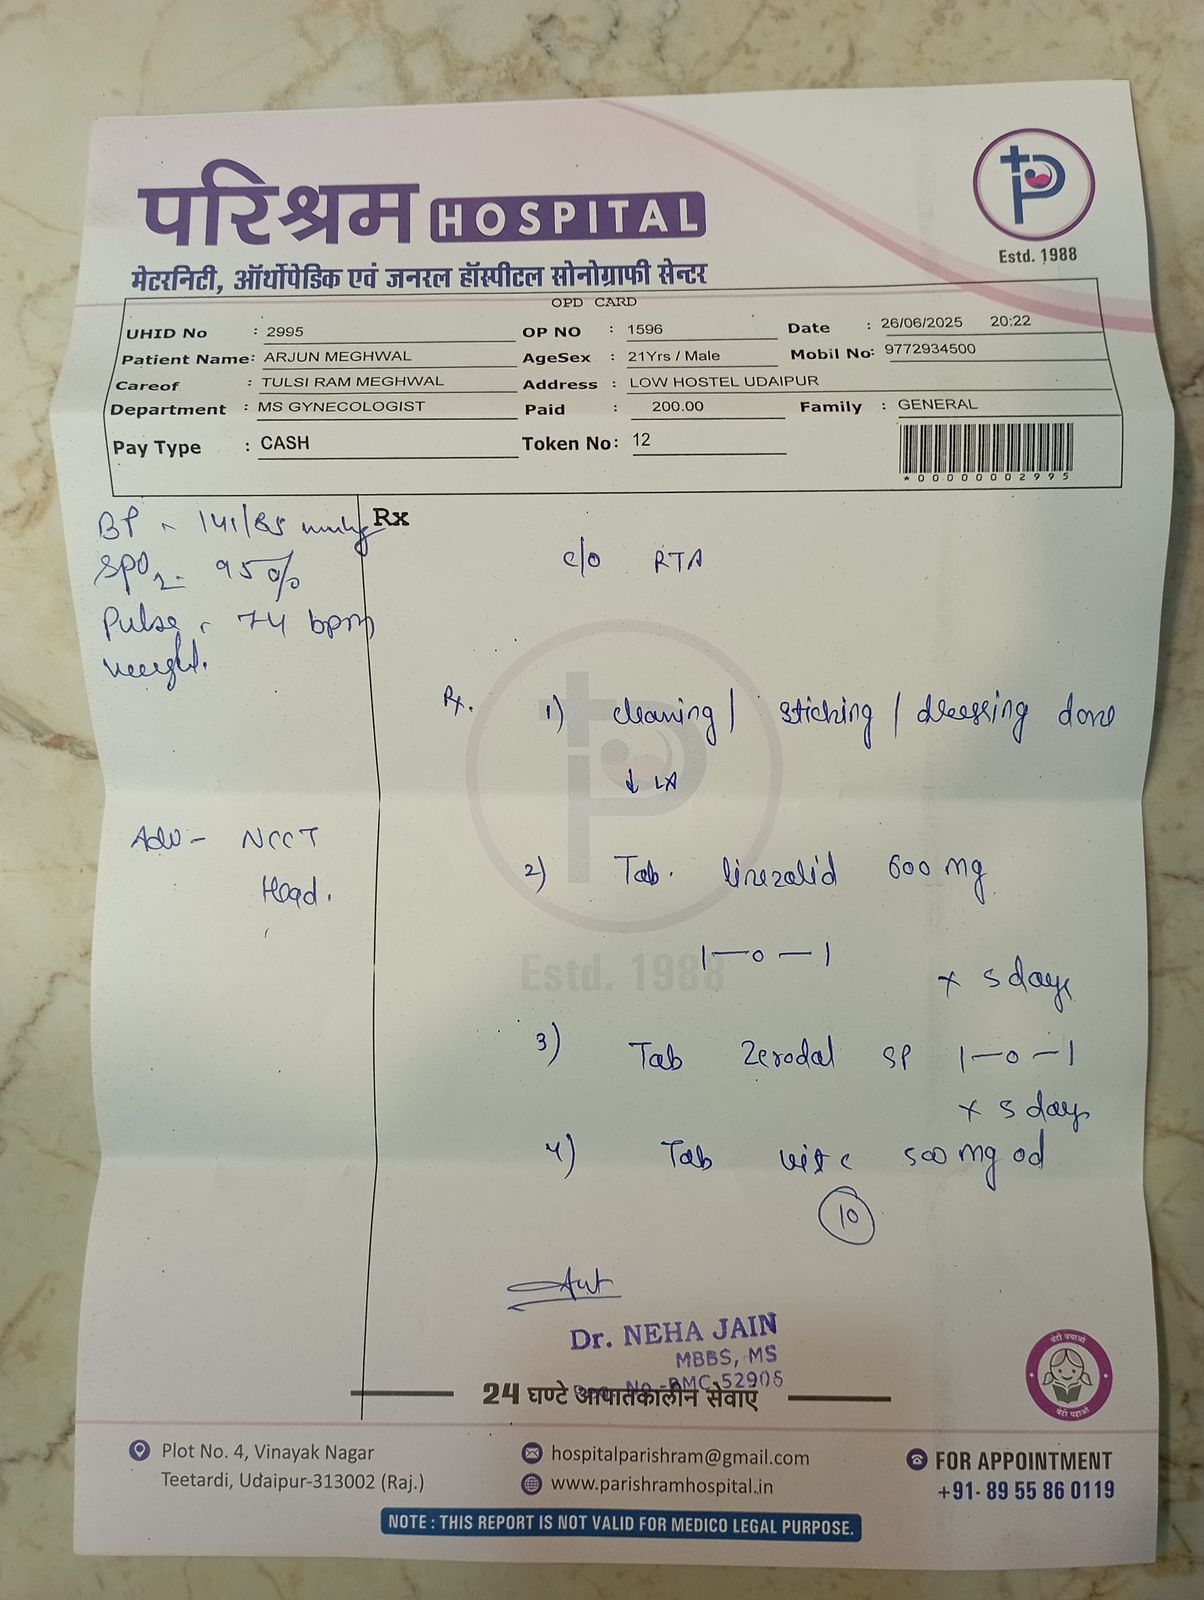 परिश्रम HOSPITAL
मेटरनिटी, ऑर्थोपेडिक एवं जनरल हॉस्पीटल सोनोग्राफी सेन्टर
Estd. 1988
OPD CARD
UHID No : 2995 OP NO : 1596 Date : 26/06/2025 20:22
Patient Name: ARJUN MEGHWAL AgeSex : 21Yrs / Male Mobil No: 9772934500
Careof : TULSI RAM MEGHWAL Address : LOW HOSTEL UDAIPUR
Department : MS GYNECOLOGIST Paid : 200.00 Family : GENERAL
Pay Type : CASH Token No: 12
*000000002995
BP - 141/85 mmhg
SPO2 - 95%
Pulse - 74 bpm
weight.
Adv - NCCT
Head.
Rx
c/o RTA
Rx. 1) cleaning / stiching / dressing done
↓ LA
2) Tab. linezolid 600 mg
1-0-1
x 5 days
3) Tab Zerodal SP 1-0-1
x 5 days
4) Tab vit c 500 mg od
10
Estd. 1988
Dr. NEHA JAIN
MBBS, MS
RMC-52906
24 घण्टे आपातकालीन सेवाए
बेटी बचाओ
बेटी पढाओ
Plot No. 4, Vinayak Nagar
Teetardi, Udaipur-313002 (Raj.)
hospitalparishram@gmail.com
www.parishramhospital.in
FOR APPOINTMENT
+91- 89 55 86 0119
NOTE : THIS REPORT IS NOT VALID FOR MEDICO LEGAL PURPOSE.